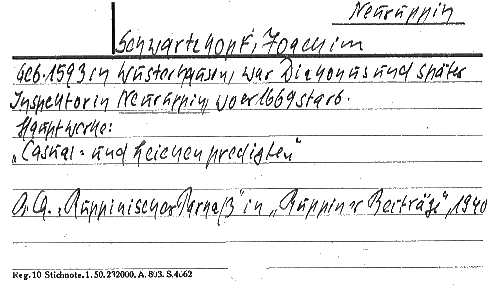 Neuruppin
Schwartzkopf, Joachim
Geb. 1593 in Wusterhausen, war Diakonus und später
Inspektor in Neuruppin, wo er 1669 starb.
Hauptwerke:
„Casual- und Leichenpredigten"
„Ruppinischer Parnaß" in „Ruppiner Beiträge", 1940
Reg. 10 Stichnote. 1. 50. 232000. A. 803. S. 4662